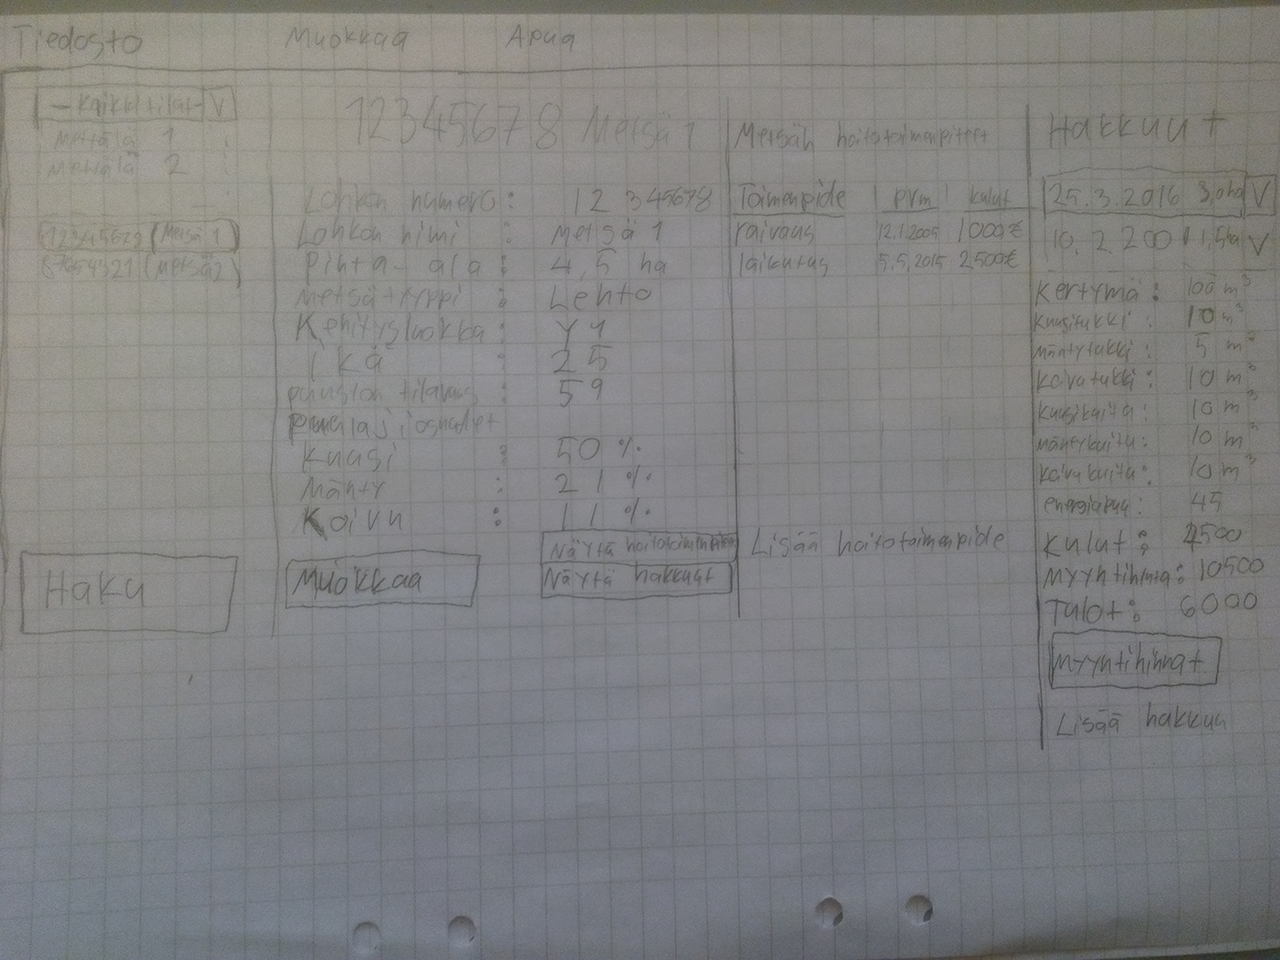 Tiedosto Muokkaa Apua
-Kaikki tilat- V
Metsälä 1
Metsälä 2
12345679 (Metsä 1)
87654321 (Metsä 2)
Haku
12345678 Metsä 1
Lohkon numero: 12345678
Lohkon nimi : Metsä 1
Pinta-ala : 4,5 ha
Metsätyyppi : Lehto
Kehitysluokka: Y4
Ikä : 25
puuston tilavuus : 59
puulajiosuudet
Kuusi : 50 %
Mänty : 21 %
Koivu : 11 %
Näytä hoitotoimenpiteet
Muokkaa Näytä hakkuut
Metsän hoitotoimenpiteet
Toimenpide | pvm | kulut
raivaus 12.1.2005 1000€
laikutus 5.5.2015 2500€
Lisää hoitotoimenpide
Hakkuut
25.3.2016 3,0ha V
10.2.2001 1,5ha V
Kertymä: 100 m³
Kuusitukki: 10 m³
Mäntytukki: 5 m³
Koivutukki: 10 m³
Kuusikuitu: 10 m³
Mäntykuitu: 10 m³
Koivukuitu: 10 m³
energiapuu: 45
Kulut: 4500
Myyntihinta: 10500
Tulot: 6000
Myyntihinnat
Lisää hakkuu